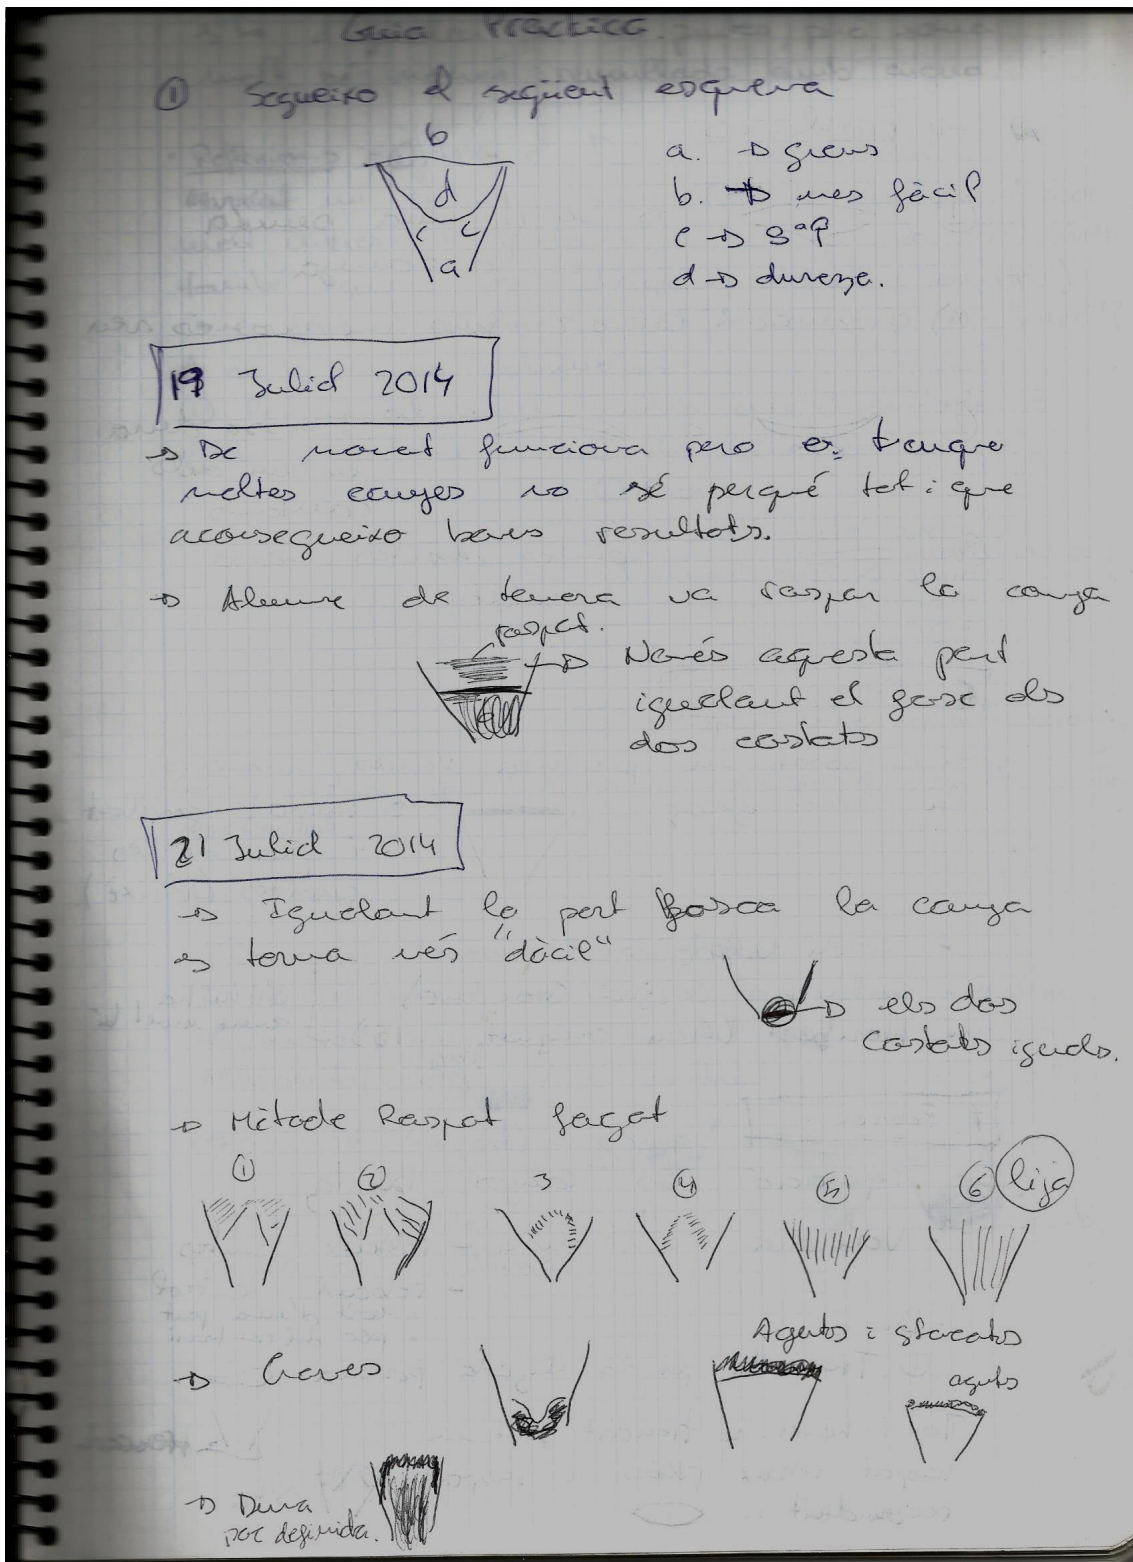 Guia Pràctica.
① Segueixo el següent esquema
b
d
c c
a
a. → greus
b. → mes fàcil
c → 8ªP
d → duresa.
19 Juliol 2014
→ De moment funciona pero es trenque
moltes canyes no sé perqué tot i que
aconsegueixo bons resultats.
→ Alumne de tenora va raspar la canya
raspat.
→ Només aquesta part
igualant el gruix als
dos costats
21 Juliol 2014
→ Igualant la part fosca la canya
es torna més "dòcil"
→ els dos
costats iguals.
→ Mètode Raspat fagot
① ② 3 ④ ⑤ ⑥ lija
Aguts i stacatos
→ Graves
aguts
→ Dura
poc definida.